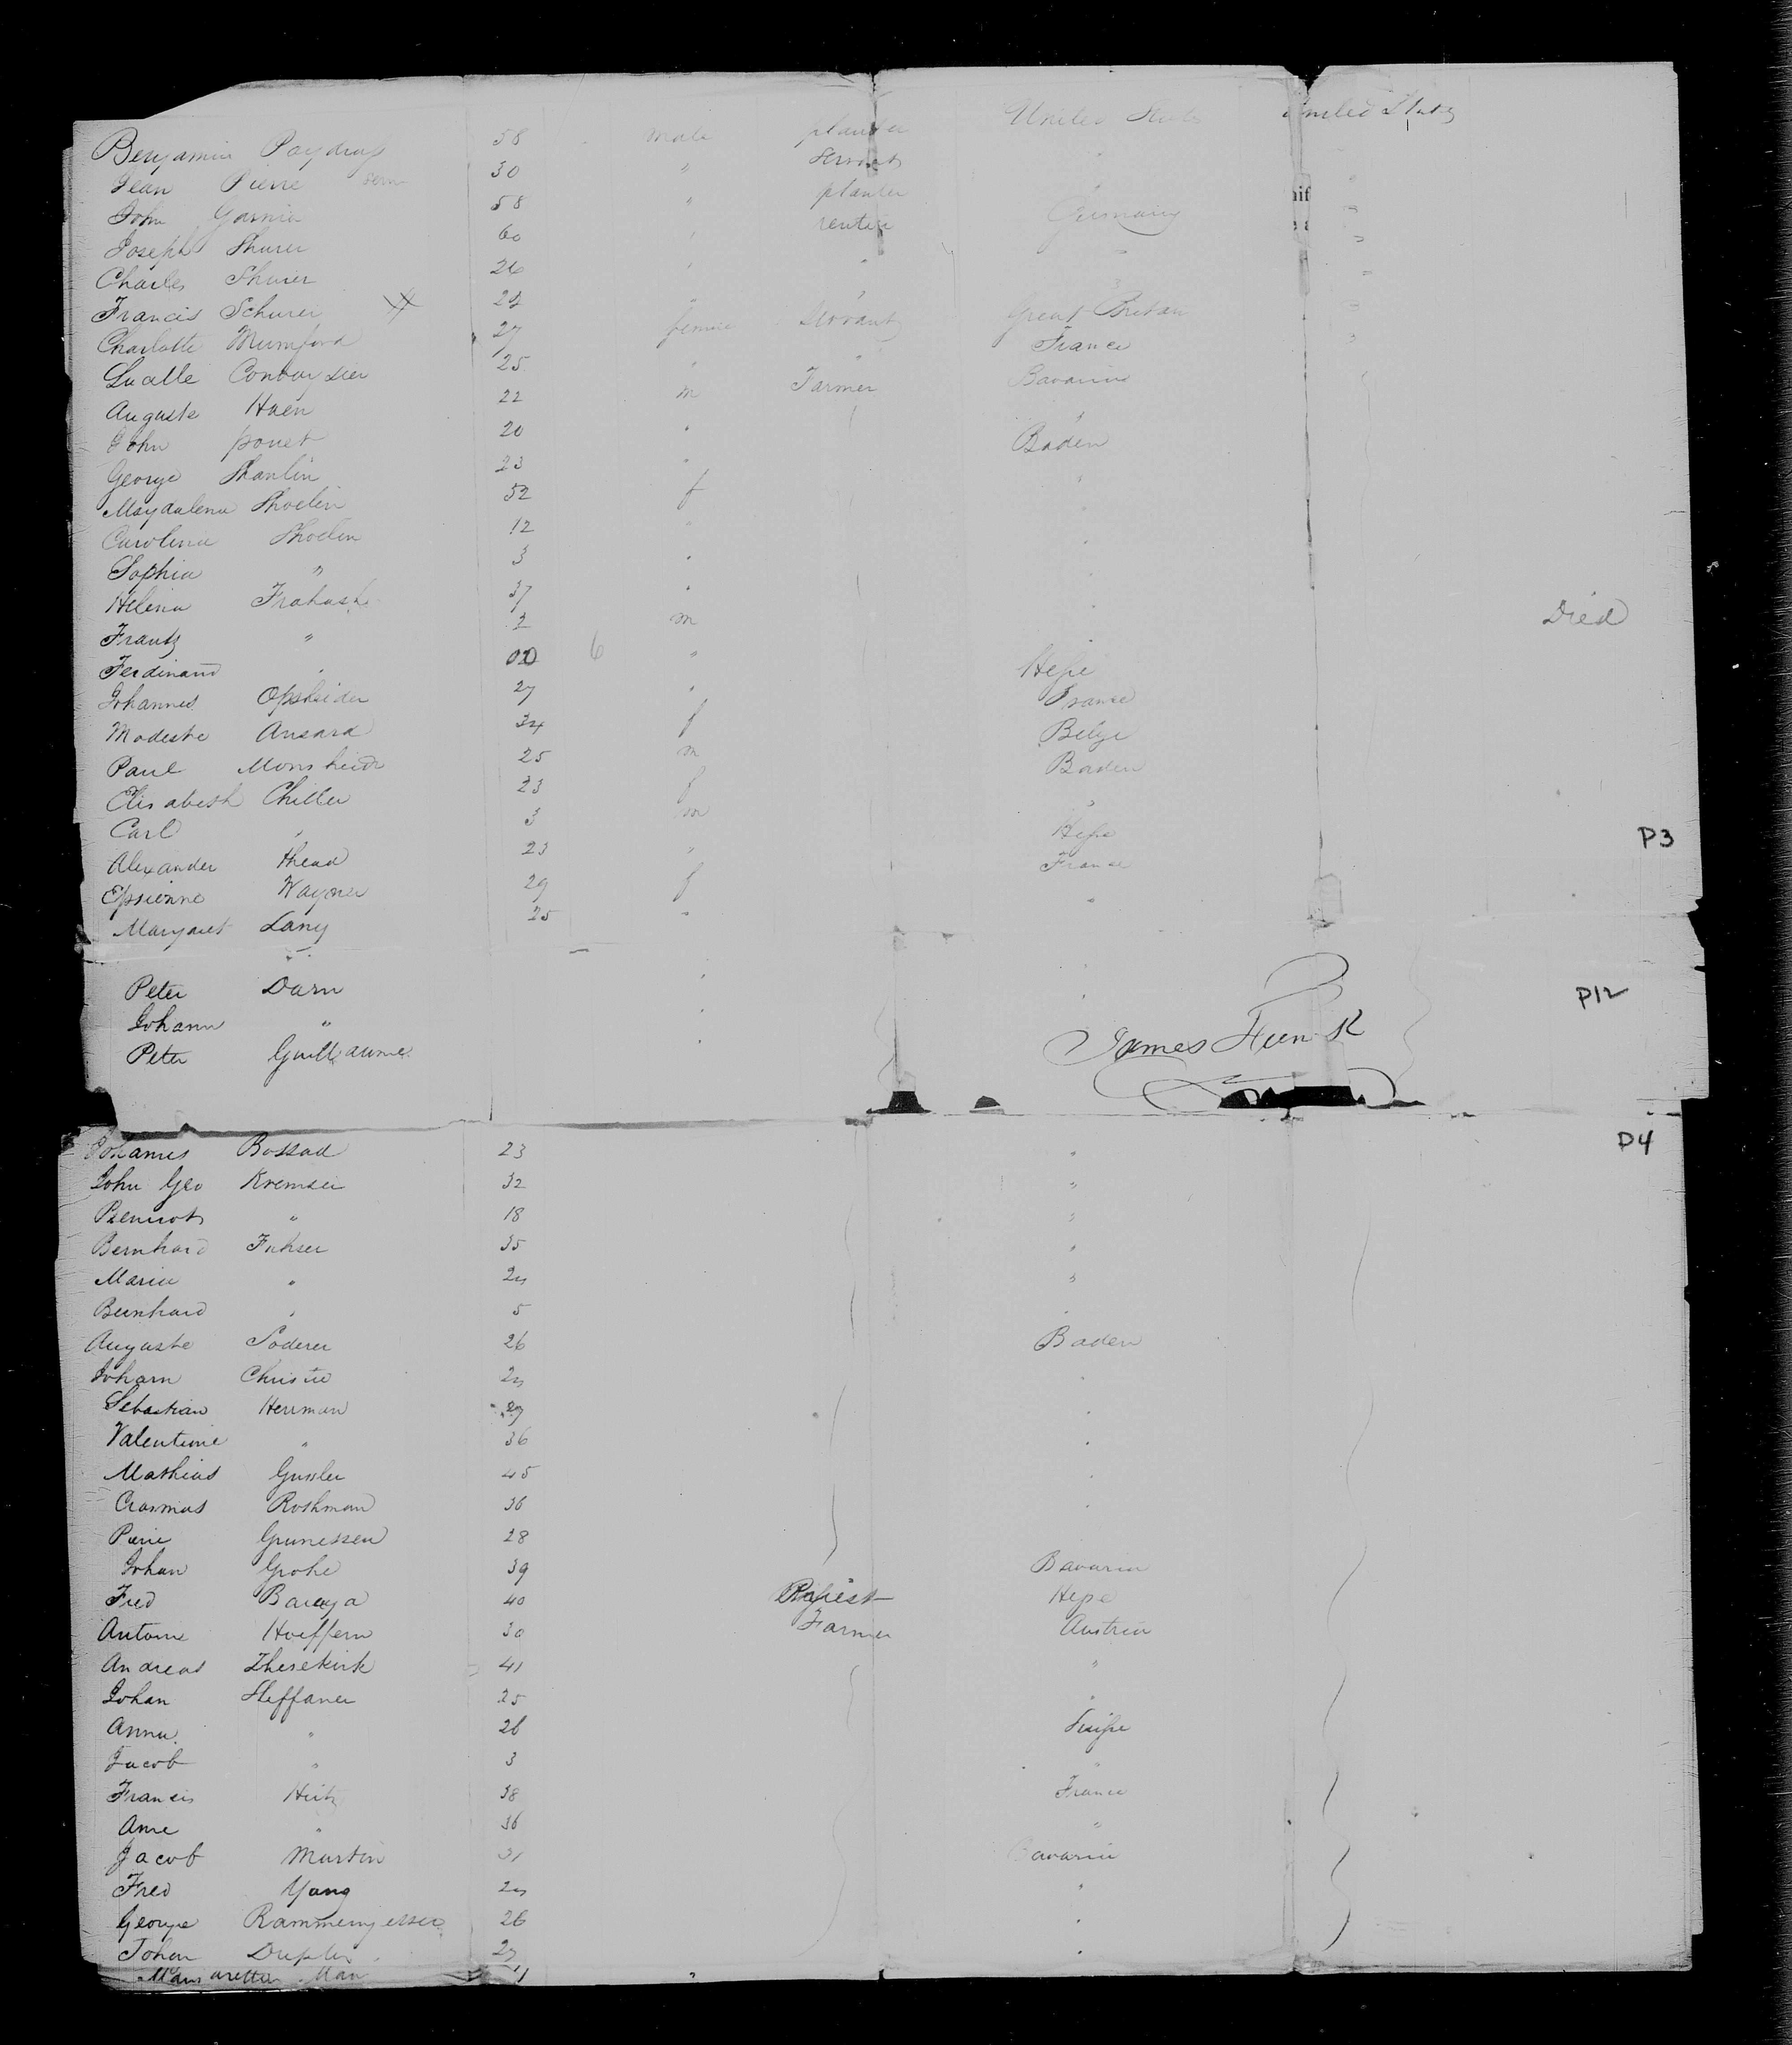 Benjamin Poydrass 58 male planter United States United States
Jean Pierre serv 30 " Servant
John Garnia 58 " planter
Joseph Shurer 60 rentier Germany "
Charles Shurer 26 " "
Francis Schurer 22 "
Charlotte Mumford 27 femme Servant Great Britan
Lucille 25 " " France
Auguste Haen 22 m Farmer Bavaria
John pouet 20 " "
George Shanlin 23 " Baden
Magdalena Shoelin 52 f "
Carolina Shoelin 12 " "
Sophia " 3 " "
Helena Frahash 37 " "
Frantz " 2 m " Died
Ferdinand " 6 " "
Johannes Opshider 27 " Hesse
Modeste Ansard 34 f France
Paul 25 m Belge
Elisabeth Chiller 23 f Baden
Carl " 3 m "
Alexander Thead 23 " Hesse P3
Epsienne Wagner 29 f France
Margaret Lang 25 " "
Peter Darn " P12
Johann " "
Peter Guillaume "
James Funk
Johannes Bossad 23 " P4
John Geo Kremser 32 "
" 18 "
Bernhard Fuhser 35 "
Maria " "
Bernhard " 5 "
Auguste Soderer 26 Baden
Johann Christe "
Sebastian Herrman 27 "
Valentine " 36 "
Mathias Gussler 45 "
Rothman 36 "
Pierre Grunessen 28
Johan Grohe 39 Bavaria
Fred Baraya 40 Hesse
Antoine Hoeffern 30 Farmer Austria
Andreas Zhesekirk 41 "
Johan Steffaner 25 "
Anna " 26
Jacob " 3 "
Francis Heitz 38 France
Anne " 36 "
Jacob Martin 31 Bavaria
Fred Yang "
George 26 "
Johan Dupler "
Man